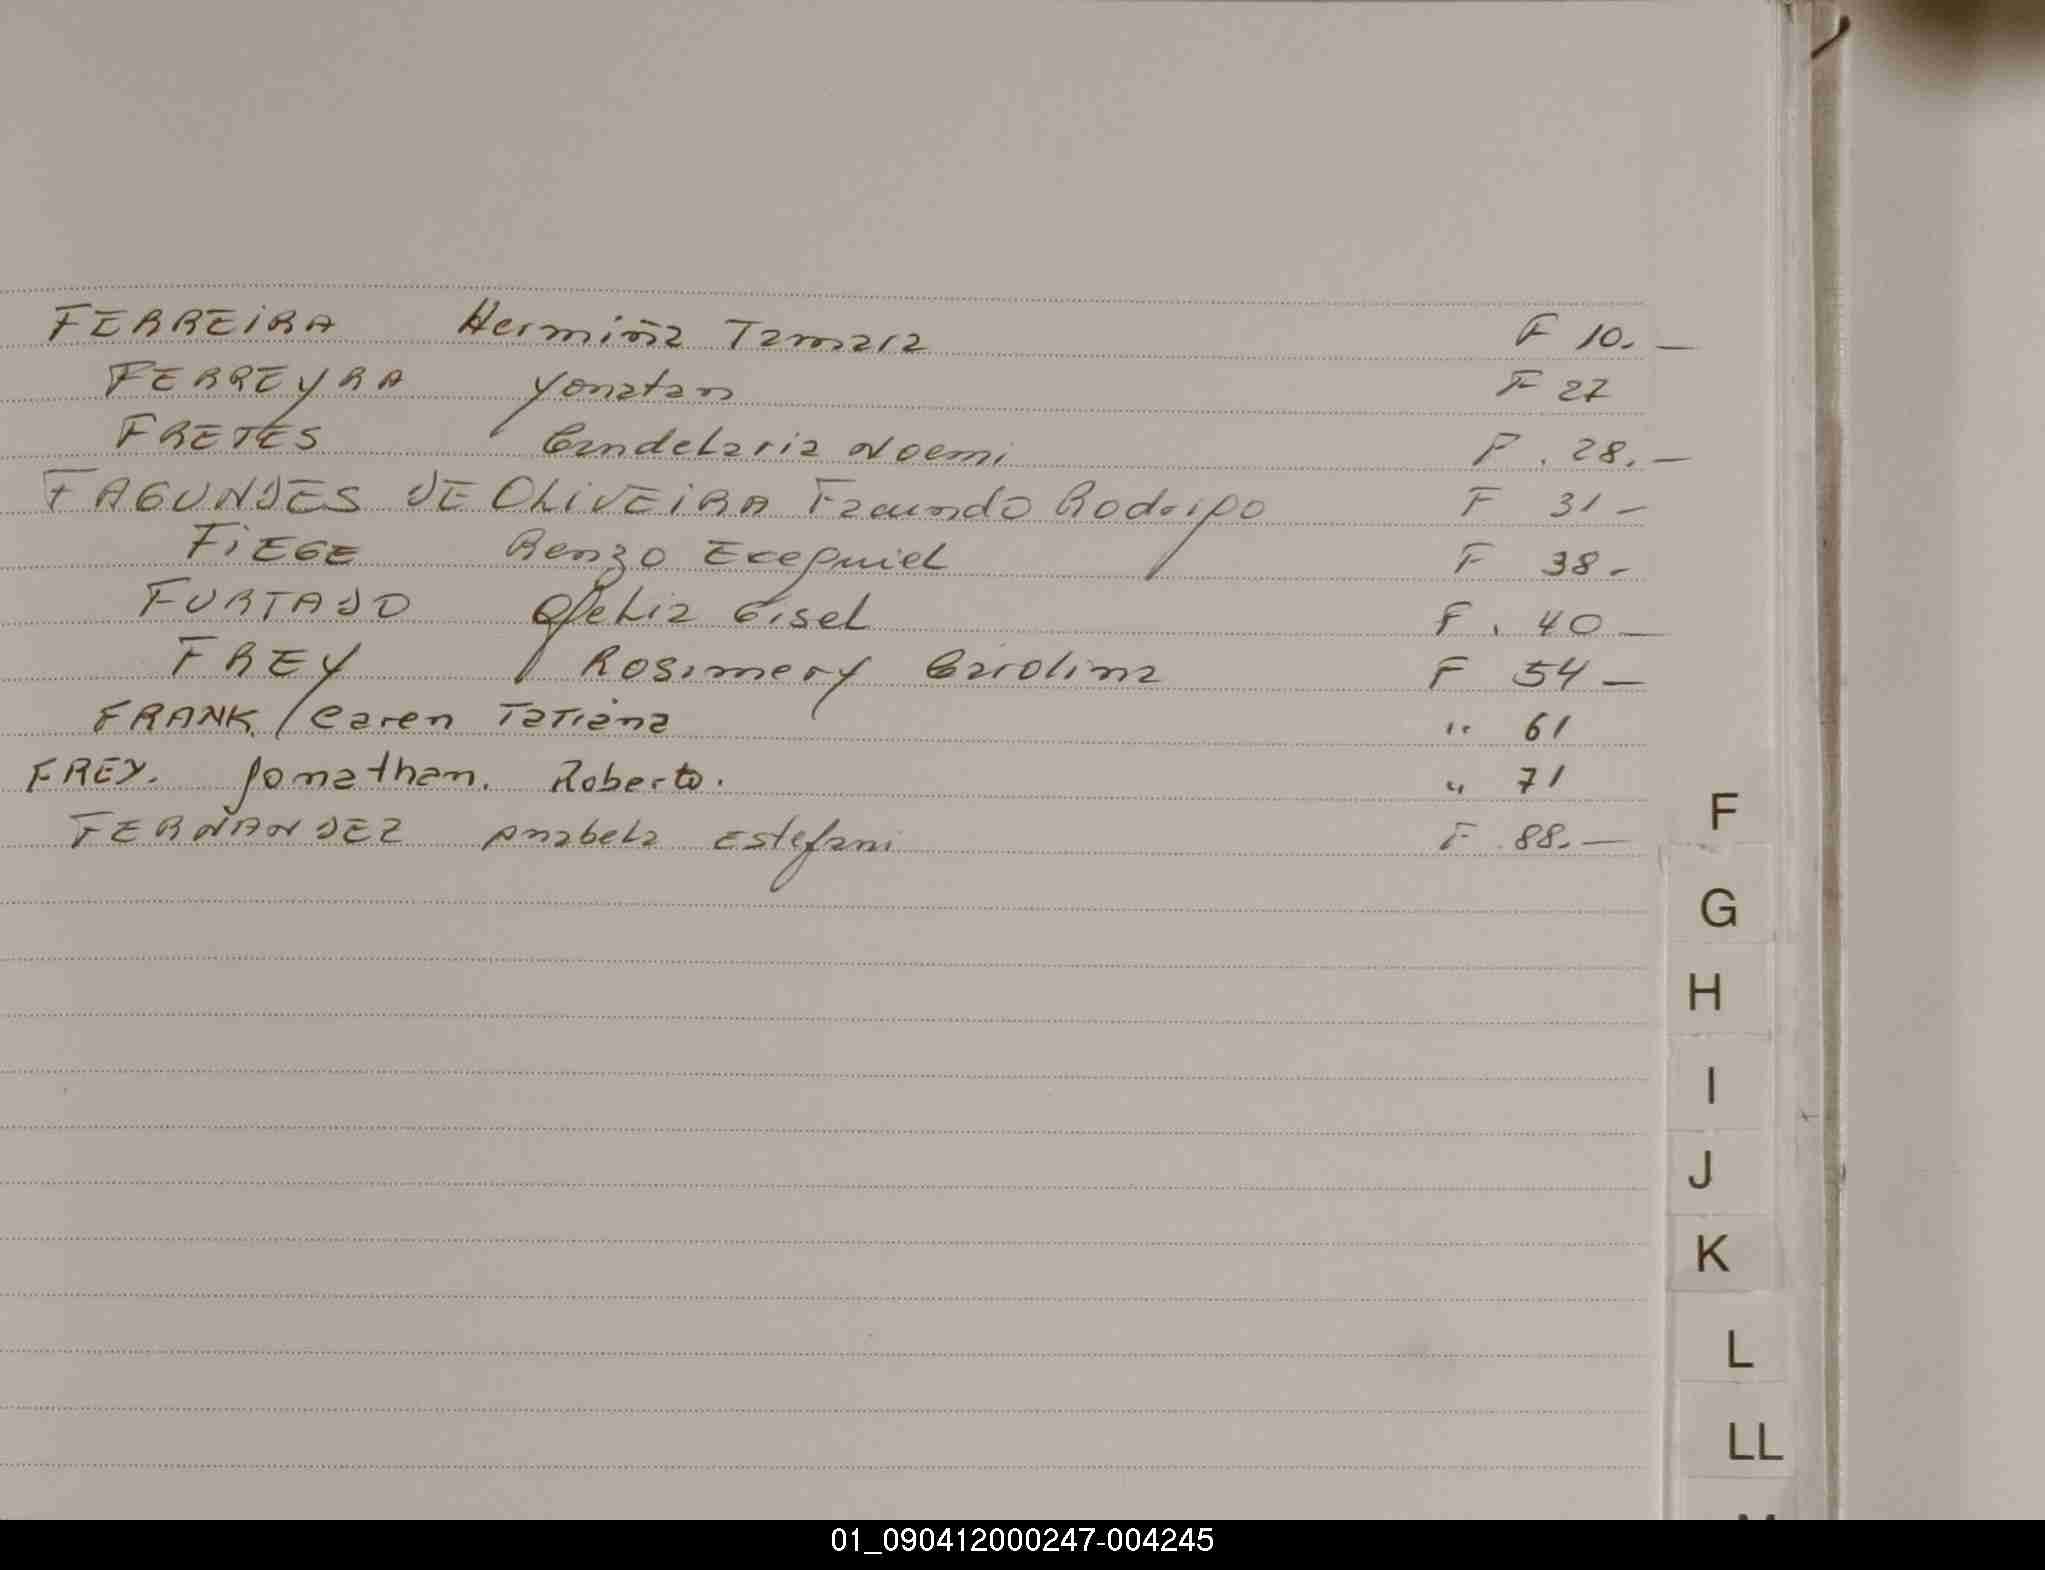 FERREIRA Hermiña Tamara F 10. —
FERREYRA Yonatan F 27
FRETES Candelaria Noemi F. 28. —
FAGUNDES DE OLIVEIRA Facundo Rodrigo F 31 –
FIEGE Renzo Exequiel F 38 –
FURTADO Ofelia Gisel F. 40 —
FREY Rosimery Carolina F 54 —
FRANK Caren Tatiana " 61
FREY. Jonathan. Roberto. " 71
FERNANDEZ Anabela Estefani F 88. —
F
G
H
I
J
K
L
LL
01_090412000247-004245